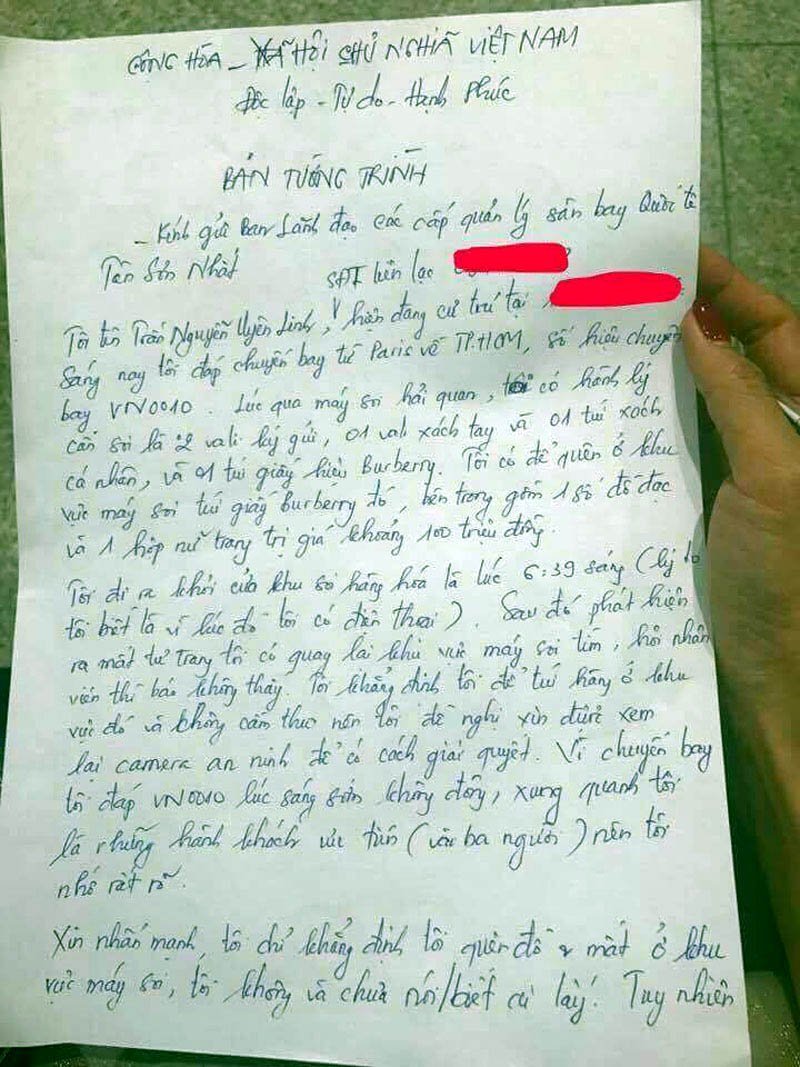 CỘNG HÒA - XÃ HỘI CHỦ NGHĨA VIỆT NAM
Độc lập - Tự do - Hạnh Phúc
BẢN TƯỜNG TRÌNH
- Kính gửi Ban Lãnh đạo các cấp quản lý sân bay Quốc tế
Tân Sơn Nhất SĐT liên lạc
Tôi tên Trần Nguyễn Uyên Linh, hiện đang cư trú tại,
Sáng nay tôi đáp chuyến bay từ Paris về TP.HCM, số hiệu chuyến
bay VN0010. Lúc qua máy soi hải quan, tôi có hành lý
cần soi là 2 vali ký gửi, 01 vali xách tay và 01 túi xách
cá nhân, và 01 túi giấy hiệu Burberry. Tôi có để quên ở khu
vực máy soi túi giấy Burberry đó, bên trong gồm 1 số đồ đạc
và 1 hộp nữ trang trị giá khoảng 100 triệu đồng.
Tôi đi ra khỏi cửa khu soi hàng hóa là lúc 6:39 sáng (lý do
tôi biết là vì lúc đó tôi có điện thoại). Sau đó phát hiện
ra mất tư trang tôi có quay lại khu vực máy soi tìm, hỏi nhân
viên thì báo không thấy. Tôi khẳng định tôi để túi hàng ở khu
vực đó và không cầm theo nên tôi đề nghị xin được xem
lại camera an ninh để có cách giải quyết. Vì chuyến bay
tôi đáp VN0010 lúc sáng sớm không đông, xung quanh tôi
là những hành khách (vài ba người) nên tôi
nhớ rất rõ.
Xin nhấn mạnh, tôi chỉ khẳng định tôi quên đồ & mất ở khu
vực máy soi, tôi không và chưa nói/biết ai lấy! Tuy nhiên